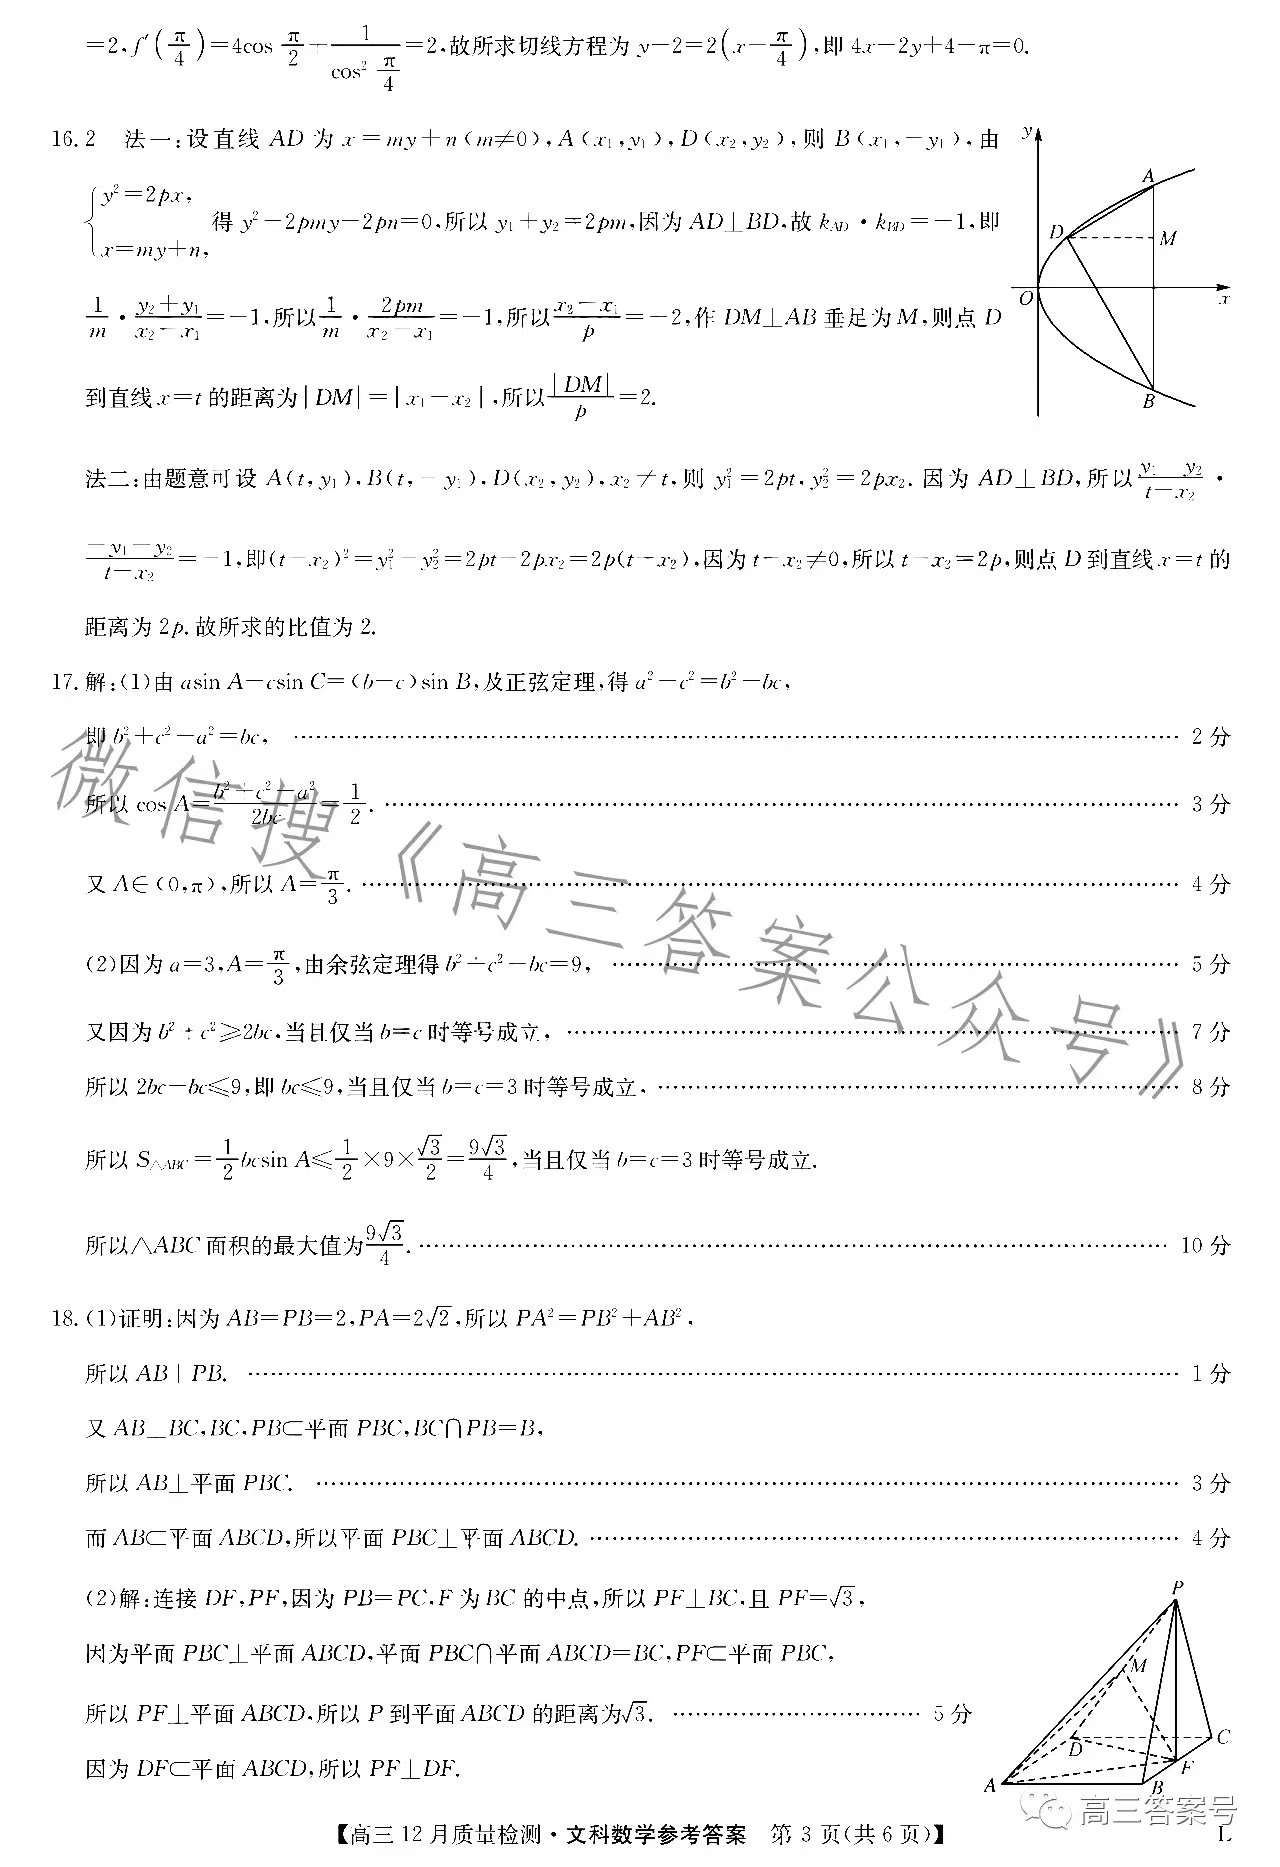 =2,f′(π/4)=4cos π/2+1/cos² π/4=2,故所求切线方程为 y-2=2(x-π/4),即 4x-2y+4-π=0.
16.2 法一:设直线 AD 为 x=my+n(m≠0),A(x₁,y₁),D(x₂,y₂),则 B(x₁,-y₁),由
{y²=2px, x=my+n, 得 y²-2pmy-2pn=0,所以 y₁+y₂=2pm,因为 AD⊥BD,故 k_AD·k_BD=-1,即
1/m·(y₂+y₁)/(x₂-x₁)=-1,所以 1/m·2pm/(x₂-x₁)=-1,所以 (x₂-x₁)/p=-2,作 DM⊥AB 垂足为 M,则点 D
到直线 x=t 的距离为|DM|=|x₁-x₂|,所以|DM|/p=2.
y
A
D
M
O
x
B
法二:由题意可设 A(t,y₁),B(t,-y₁),D(x₂,y₂),x₂≠t,则 y₁²=2pt,y₂²=2px₂. 因为 AD⊥BD,所以 (y₁-y₂)/(t-x₂)·
(-y₁-y₂)/(t-x₂)=-1,即(t-x₂)²=y₁²-y₂²=2pt-2px₂=2p(t-x₂),因为 t-x₂≠0,所以 t-x₂=2p,则点 D 到直线 x=t 的
距离为 2p.故所求的比值为 2.
17.解:(1)由 asin A-csin C=(b-c)sin B,及正弦定理,得 a²-c²=b²-bc,
即 b²+c²-a²=bc, …… 2 分
所以 cos A=(b²+c²-a²)/2bc=1/2. …… 3 分
又 A∈(0,π),所以 A=π/3. …… 4 分
(2)因为 a=3,A=π/3,由余弦定理得 b²+c²-bc=9, …… 5 分
又因为 b²+c²≥2bc,当且仅当 b=c 时等号成立, …… 7 分
所以 2bc-bc≤9,即 bc≤9,当且仅当 b=c=3 时等号成立, …… 8 分
所以 S△ABC=1/2bcsin A≤1/2×9×√3/2=9√3/4,当且仅当 b=c=3 时等号成立.
所以△ABC 面积的最大值为 9√3/4. …… 10 分
18.(1)证明:因为 AB=PB=2,PA=2√2,所以 PA²=PB²+AB²,
所以 AB⊥PB. …… 1 分
又 AB⊥BC,BC,PB⊂平面 PBC,BC∩PB=B,
所以 AB⊥平面 PBC. …… 3 分
而 AB⊂平面 ABCD,所以平面 PBC⊥平面 ABCD. …… 4 分
(2)解:连接 DF,PF,因为 PB=PC,F 为 BC 的中点,所以 PF⊥BC,且 PF=√3,
因为平面 PBC⊥平面 ABCD,平面 PBC∩平面 ABCD=BC,PF⊂平面 PBC,
所以 PF⊥平面 ABCD,所以 P 到平面 ABCD 的距离为√3. …… 5 分
因为 DF⊂平面 ABCD,所以 PF⊥DF.
P
M
D
C
F
A
B
微信搜《高三答案公众号》
高三答案号
【高三 12 月质量检测·文科数学参考答案 第 3 页(共 6 页)】
L